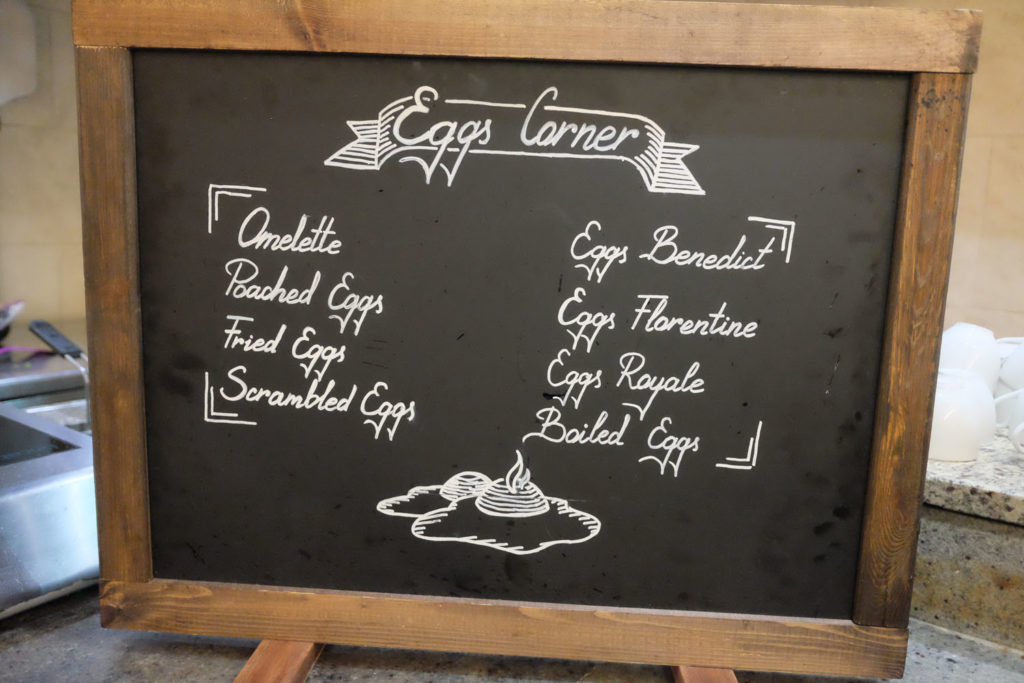 Eggs Corner
Omelette
Poached Eggs
Fried Eggs
Scrambled Eggs
Eggs Benedict
Eggs Florentine
Eggs Royale
Boiled Eggs